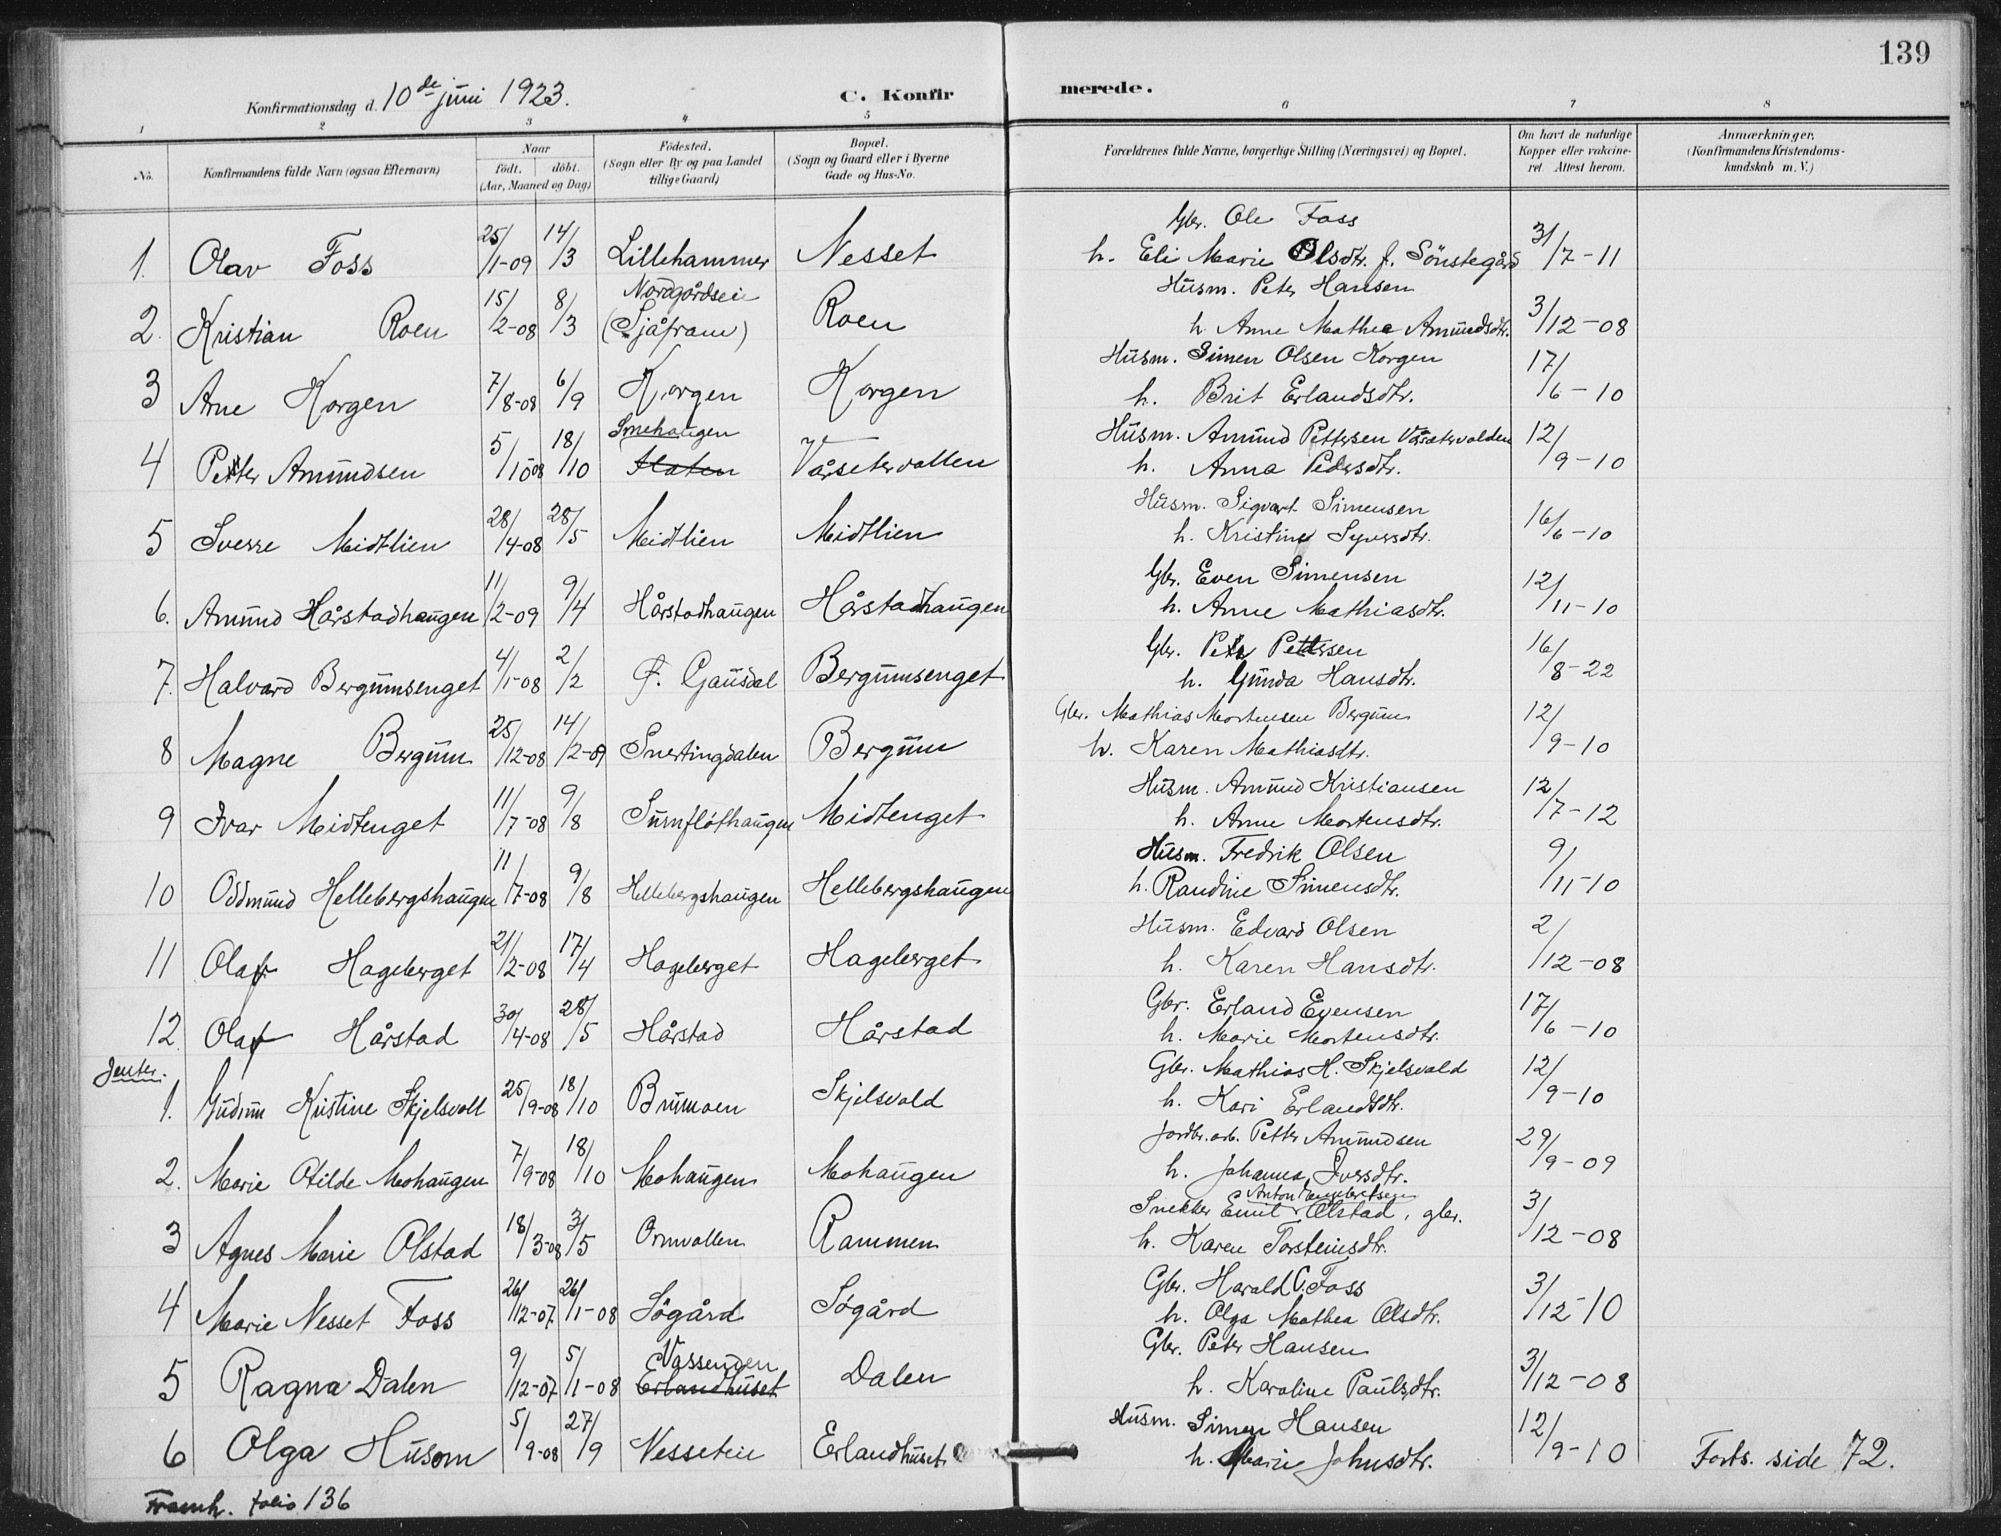 139
Konfirmationsdag d. 10de juni 1923. C. Konfir merede.
1 2 3 4 5 6 7 8
No. Konfirmandens fulde Navn (ogsaa Efternavn) Naar født. døbt. (Aar, Maaned og Dag) Fødested. (Sogn eller By og paa Landet tillige Gaard) Bopæl. (Sogn og Gaard eller i Byerne Gade og Hus-No. Forældrenes fulde Navne, borgerlige Stilling (Næringsvei) og Bopæl. Om havt de naturlige Kopper eller vakcineret. Attest herom. Anmærkninger. (Konfirmandens Kristendomskundskab m. V.)
Gbr. Ole Foss
1. Olav Foss 25/1-09 14/3 Lillehammer Nesset h. Eli Marie Olsdtr. f. Sönstegård 31/7-11
Nordgårdseie Husm. Peter Hansen
2. Kristian Roen 15/2-08 8/3 (Sjåfram) Roen h. Anne Mathea Amundsdtr. 3/12-08
Husm. Simen Olsen Korgen
3 Arne Korgen 7/8-08 6/9 Korgen Korgen h. Brit Erlandsdtr. 17/6-10
Smehaugen Husm. Amund Pettersen Vårsætervolden
4 Petter Amundsen 5/10-08 18/10 Flaten Vårsetervollen h. Anna Pedersdtr. 12/9-10
Husm. Sigvart Simensen
5 Sverre Midtlien 28/4-08 28/5 Midtlien Midtlien h. Kristine Syversdtr. 16/6-10
Gbr. Even Simensen
6. Amund Hårstadhaugen 11/2-09 9/4 Hårstadhaugen Hårstadhaugen h. Anne Mathiasdtr. 12/11-10
Gbr. Peter Pettersen
7. Halvard Bergumsenget 4/1-08 2/2 Ø. Gausdal Bergumsenget h. Gunda Hansdtr. 16/8-22
Gbr. Mathias Mortensen Bergum
8 Magne Bergum 25/12-08 14/2-09 Snertingdalen Bergum h. Karen Mathiasdtr. 12/9-10
Husm. Amund Kristiansen
9 Ivar Midtenget 11/7-08 9/8 Sumfløthaugen Midtenget h. Anne Mortensdtr. 12/7-12
Husm. Fredrik Olsen
10 Oddmund Hellebergshaugen 11/7-08 9/8 Hellebergshaugen Hellebergshaugen h. Randine Simensdtr. 9/11-10
Husm. Edvard Olsen
11 Olaf Hageberget 21/2-08 17/4 Hageberget Hageberget h. Karen Hansdtr. 2/12-08
Gbr. Erland Evensen
12. Olaf Hårstad 30/4-08 28/5 Hårstad Hårstad h. Marie Mortensdtr. 17/6-10
Jenter. Gbr. Mathias H. Skjelsvold
1. Gudrun Kristine Skjelsvoll 25/9-08 18/10 Brumoen Skjelsvold h. Kari Erlandsdtr. 12/9-10
Jordbr.arb. Petter Amundsen
2. Marie Otilde Mohaugen 7/9-08 18/10 Mohaugen Mohaugen h. Johanna Iversdtr. 29/9-09
Anton Engebretsen
Snekker Emil Olstad, gbr.
3 Agnes Marie Olstad 18/3-08 3/5 Ornvollen Rammen h. Karen Torsteinsdtr. 3/12-08
Gbr. Harald C. Foss
4 Marie Nesset Foss 26/12-07 26/1-08 Søgård Søgård h. Olga Mathea Olsdtr. 3/12-10
Vassenden Gbr. Peter Hansen
5 Ragna Dalen 9/12-07 5/1-08 Erlandhuset Dalen h. Karoline Paulsdtr. 3/12-08
Husm. Simen Hansen
6 Olga Husom 5/9-08 27/9 Nesseteie Erlandhuset h. Marie Johnsdtr. 12/9-10 Forts. side 72.
Framh. folio 136